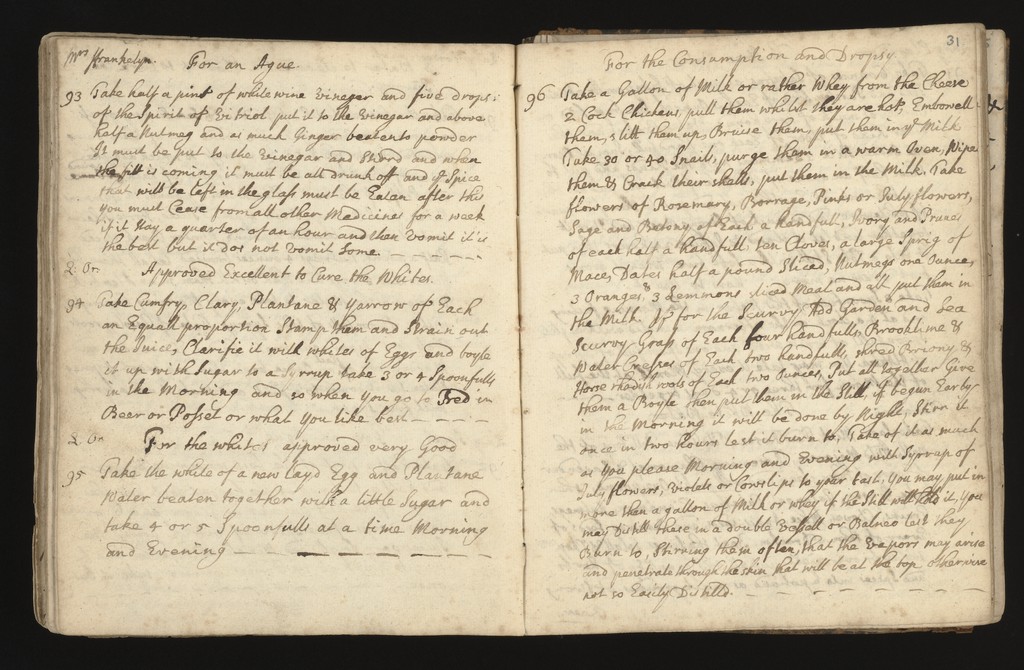 Mrs Frankelyn. For an Ague.
93 Take half a pint of white wine vineger and five drops
of the Spirit of Vitriol put it to the Vinegar and above
half a Nutmeg and as much Ginger beaten to powder
It must be put to the Vinegar and Stired and when
the fitt is coming it must be all drunk off and ye Spice
that will be left in the glass must be Eaten after this
you must Cease from all other Medicines for a week
if it stay a quarter of an hour and then vomit it is
the best but it does not vomit Some.
Approved Excellent to Cure the Whites.
94 Take Cumfry, Clary, Plantane & Yarrow of Each
an Equall proportion Stamp them and Strain out
the Juice, Clarifie it with whites of Eggs and boyle
it up with Sugar to a Syrrup take 3 or 4 Spoonfulls
in the Morning and so when you go to Bed in
Beer or Posset or what you like best
For the whites approved very Good
95 Take the white of a new layd Egg and Plantane
Water beaten together with a little Sugar and
take 4 or 5 Spoonfulls at a time Morning
and Evening
31
For the Consumption and Dropsy.
96 Take a Gallon of Milk or rather Whey from the Cheese
2 Cock Chickens, pull them whilst they are hot, Embowell
them, slitt them up, Bruise them, put them in ye Milk
Take 30 or 40 Snails, purge them in a warm Oven, Wipe
them & Crack their shells, put them in the Milk, Take
flowers of Rosemary, Borrage, Pinks or July flowers,
Sage and Betony of Each a handfull, Ivory and Pranes
of each half a handfull ten Cloves, a large Sprig of
Mace, Dates half a pound Sliced, Nutmegs one Ounce,
3 Oranges & 3 Lemmons sliced Meat and all put them in
the Milk If for the Scurvy Add Garden and Sea
Scurvy Grass of Each four handfulls, Brooklime &
Water Cresses of Each two handfulls, shred Briony &
Horse rhadish roots of Each two Ounces, Put all together Give
them a Boyle then put them in the Still, if begun Early
in the Morning it will be done by Night, Stirr it
once in two hours lest it burn to, Take of it as much
as you please Morning and Evening with Syrrup of
July flowers, Violets or Cowslips to your tast, You may put in
more then a gallon of Milk or whey if the Still will hold it, You
may Distill these in a double Vessell or Balneo lest they
Burn to, Stirring them often, that the Vapors may arise
and penetrate through the skin that will be at the top otherwise
not so Easily Distilld.